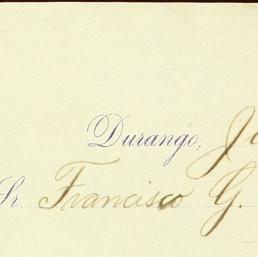 Durango,
Sr. Francisco G.